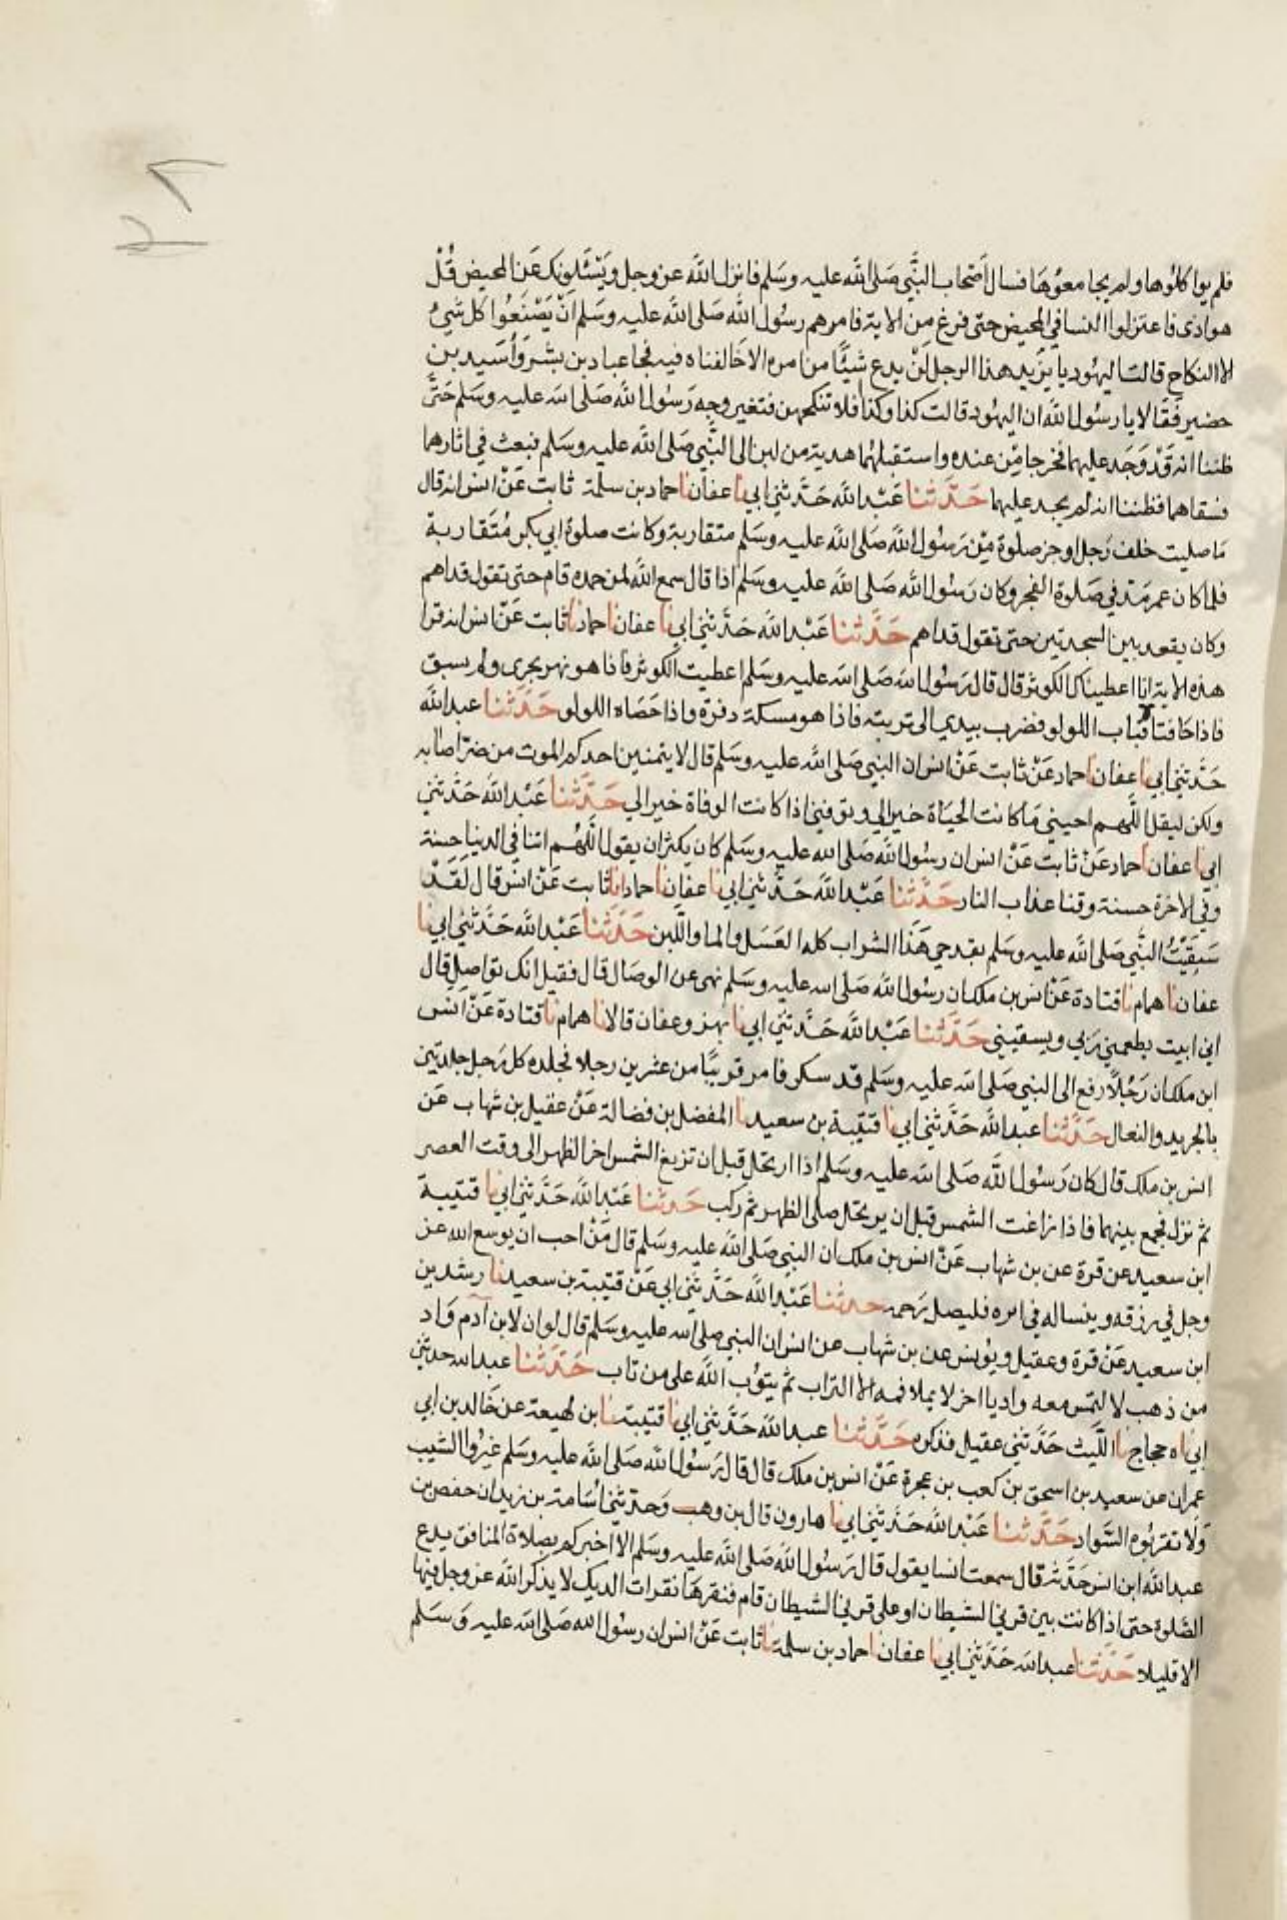 فلم يواكلوها ولم يجامعوها فسال أصحاب النبي صلى الله عليه وسلم فانزل الله عز وجل ويسئلونك عن المحيض قل
هو اذى فاعتزلوا النسا في المحيض حتى فرغ من الاية فامرهم رسول الله صلى الله عليه وسلم ان يصنعوا كل شيء
الا النكاح قالت اليهود يا يزيد هذا الرجل لن يدع شيئا من امره الا خالفناه فيه فجا عباد بن بشر وأسيد بن
حضير فقالا يا رسول الله ان اليهود قالت كذا وكذا فلا تنكحهن فتغير وجه رسول الله صلى الله عليه وسلم حتى
ظننا انه قد وجد عليهما فخرجا من عنده واستقبلهما هدية من لبن الى النبي صلى الله عليه وسلم فبعث في اثارهما
فسقاهما فظننا انه لم يجد عليهما حدثنا عبد الله حدثني ابي نا عفان نا حماد بن سلمة ثابت عن انس انه قال
ما صليت خلف رجل اوجز صلوة من رسول الله صلى الله عليه وسلم متقاربة وكانت صلوة ابي بكر متقاربة
فلما كان عمر مد في صلوة الفجر وكان رسول الله صلى الله عليه وسلم اذا قال سمع الله لمن حمده قام حتى تقول قد اهم
وكان يقعد بين السجدتين حتى تقول قد اهم حدثنا عبد الله حدثني ابي نا عفان نا حماد نا ثابت عن انس انه قرا
هذه الاية انا اعطيناك الكوثر قال قال رسول الله صلى الله عليه وسلم اعطيت الكوثر فاذا هو نهر يجرى ولم يسبق
فاذا حافتا قباب اللولو فضرب بيدي الى تربته فاذا هو مسكة دفرة واذا حصاه اللولو حدثنا عبد الله
حدثني ابي نا عفان نا حماد عن ثابت عن انس ان النبي صلى الله عليه وسلم قال لا يتمنين احدكم الموت من ضر اصابه
ولكن ليقل اللهم احيني ما كانت الحياة خيرا لي وتوفني اذا كانت الوفاة خيرا لي حدثنا عبد الله حدثني
ابي نا عفان نا حماد عن ثابت عن انس ان رسول الله صلى الله عليه وسلم كان يكثر ان يقول اللهم اتنا في الدنيا حسنة
وفي الاخرة حسنة وقنا عذاب النار حدثنا عبد الله حدثني ابي نا عفان نا حماد انا ثابت عن انس قال لقد
سقيت النبي صلى الله عليه وسلم بقدحي هذا الشراب كله العسل والما واللبن حدثنا عبد الله حدثني ابي نا
عفان نا همام نا قتادة عن انس بن ملك ان رسول الله صلى الله عليه وسلم نهى عن الوصال قال فقيل انك تواصل قال
اني ابيت يطعمني ربي ويسقيني حدثنا عبد الله حدثني ابي نا بهز وعفان قالا نا همام نا قتادة عن انس
ابن ملك ان رجلا رفع الى النبي صلى الله عليه وسلم قد سكر فامر قريبا من عشرين رجلا فجلده كل رجل جلدتين
بالجريد والنعال حدثنا عبد الله حدثني ابي نا قتيبة بن سعيد نا المفضل بن فضالة عن عقيل بن شهاب عن
انس بن ملك قال كان رسول الله صلى الله عليه وسلم اذا ارتحل قبل ان تزيغ الشمس اخر الظهر الى وقت العصر
ثم نزل فجمع بينهما فاذا زاغت الشمس قبل ان يرتحل صلى الظهر ثم ركب حدثنا عبد الله حدثني ابي نا قتيبة
ابن سعيد عن قرة عن بن شهاب عن انس بن ملك ان النبي صلى الله عليه وسلم قال من احب ان يوسع الله عز
وجل في رزقه وينسا له في اثره فليصل رحمه حدثنا عبد الله حدثني ابي عن قتيبة بن سعيد نا رشدين
ابن سعيد عن قرة وعقيل ويونس عن بن شهاب عن انس ان النبي صلى الله عليه وسلم قال لو ان لابن آدم واد
من ذهب لالتمس معه واديا اخر لا يملا فمه الا التراب ثم يتوب الله على من تاب حدثنا عبد الله حدثني
ابي ناه حجاج نا الليث حدثني عقيل فذكره حدثنا عبد الله حدثني ابي نا قتيبة نا بن لهيعة عن خالد بن ابي
عمران عن سعيد بن اسحق بن كعب بن عجرة عن انس بن ملك قال قال رسول الله صلى الله عليه وسلم غيروا الشيب
ولا تقربوه السواد حدثنا عبد الله حدثني ابي نا هارون قال بن وهب وحدثني اسامة بن زيد ان حفص بن
عبد الله ابن انس حدثه قال سمعت انسا يقول قال رسول الله صلى الله عليه وسلم الا اخبركم بصلاة المنافق يدع
الصلوة حتى اذا كانت بين قرني الشيطان او على قرني الشيطان قام فنقرها نقرات الديك لا يذكر الله عز وجل فيها
الا قليلا حدثنا عبد الله حدثني ابي نا عفان نا حماد بن سلمة نا ثابت عن انس ان رسول الله صلى الله عليه وسلم